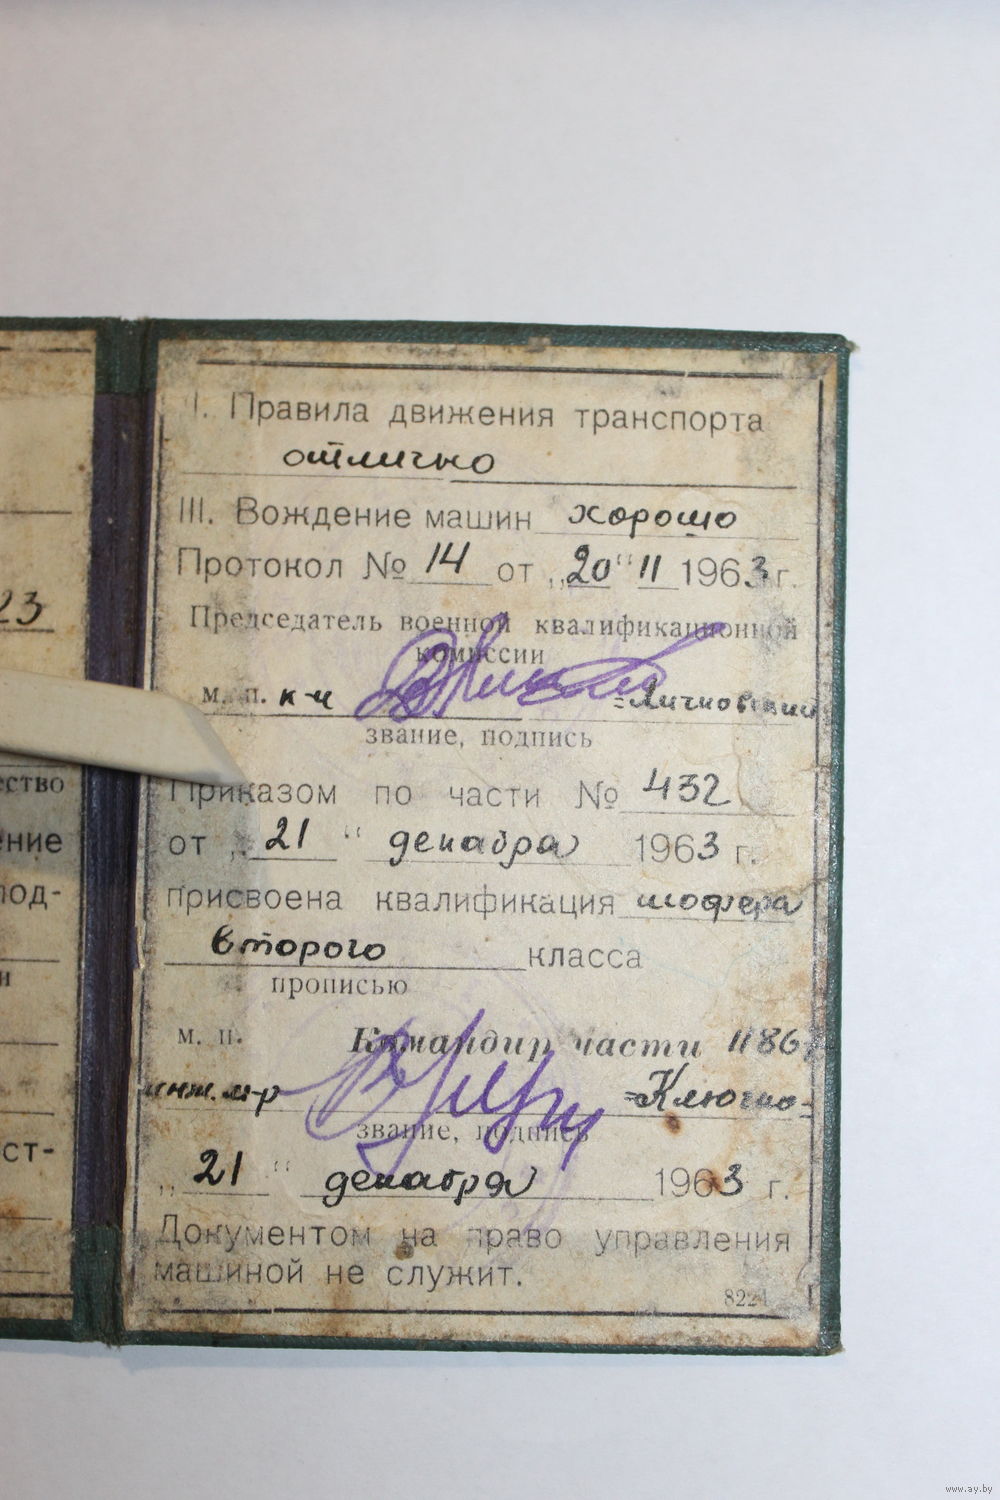 I. Правила движения транспорта
отлично
III. Вождение машин хорошо
Протокол № 14 от „20" 11 1963 г.
Председатель военной квалификационной
комиссии
м. п. к-н =Личковский
звание, подпись
Приказом по части № 432
от „21" декабря 1963 г.
присвоена квалификация шофера
второго класса
прописью
м. п. Командир части 1186
инж. м-р =Ключко=
звание, подпись
„21" декабря 1963 г.
Документом на право управления
машиной не служит.
23
ство
ение
под-
и
ст-
www.ay.by